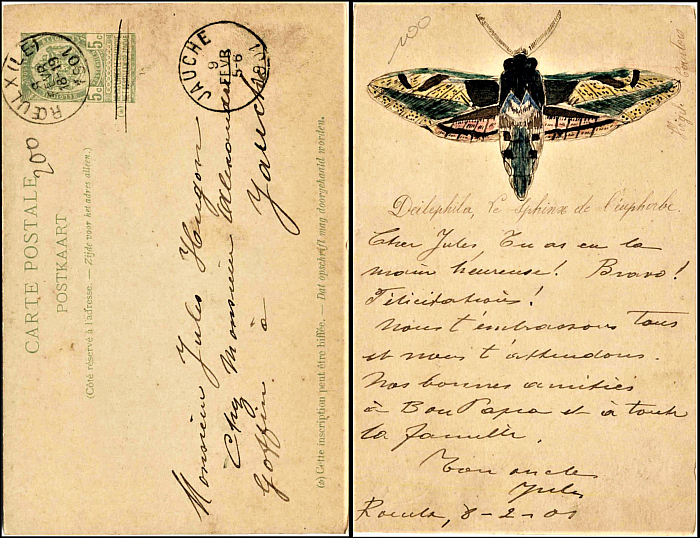 5c 5c
RŒULX(ILE)
1901
JAUCHE
9
FEVR
5-6
1901
200
CARTE POSTALE
POSTKAART
(Côté réservé à l'adresse. — Zijde voor het adres alleen.)
Monsieur Jules Hugon
Chez Monsieur Alexandre
Goffin
à
Jauche
(b) Cette inscription peut être biffée. — Dat opschrift mag doorgehaald worden.
200
Deilephila, Le Sphinx de l'euphorbe.
Cher Jules Tu as eu la
main heureuse! Bravo!
Félicitations!
Nous t'embrassons tous
et nous t'attendons.
Nos bonnes amitiés
à Bon Papa et à toute
la famille.
Ton oncle
Jules
Roeulx, 8-2-01